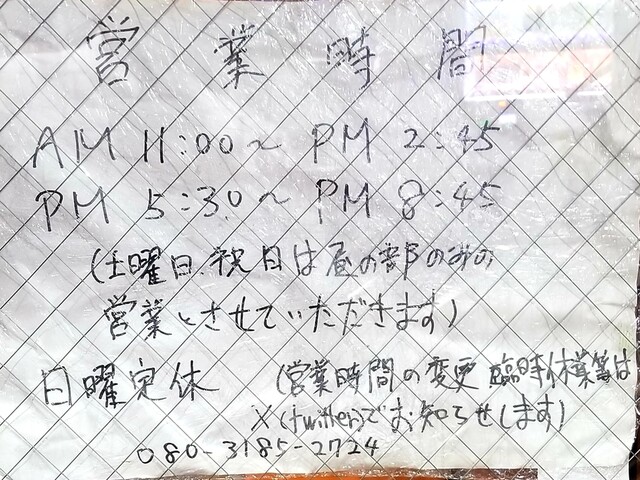 営業時間
AM 11:00～PM 2:45
PM 5:30～PM 8:45
(土曜日、祝日は昼の部のみの
営業とさせていただきます)
日曜定休 (営業時間の変更 臨時休業等は
X(twitter)でお知らせします)
080-3185-2724